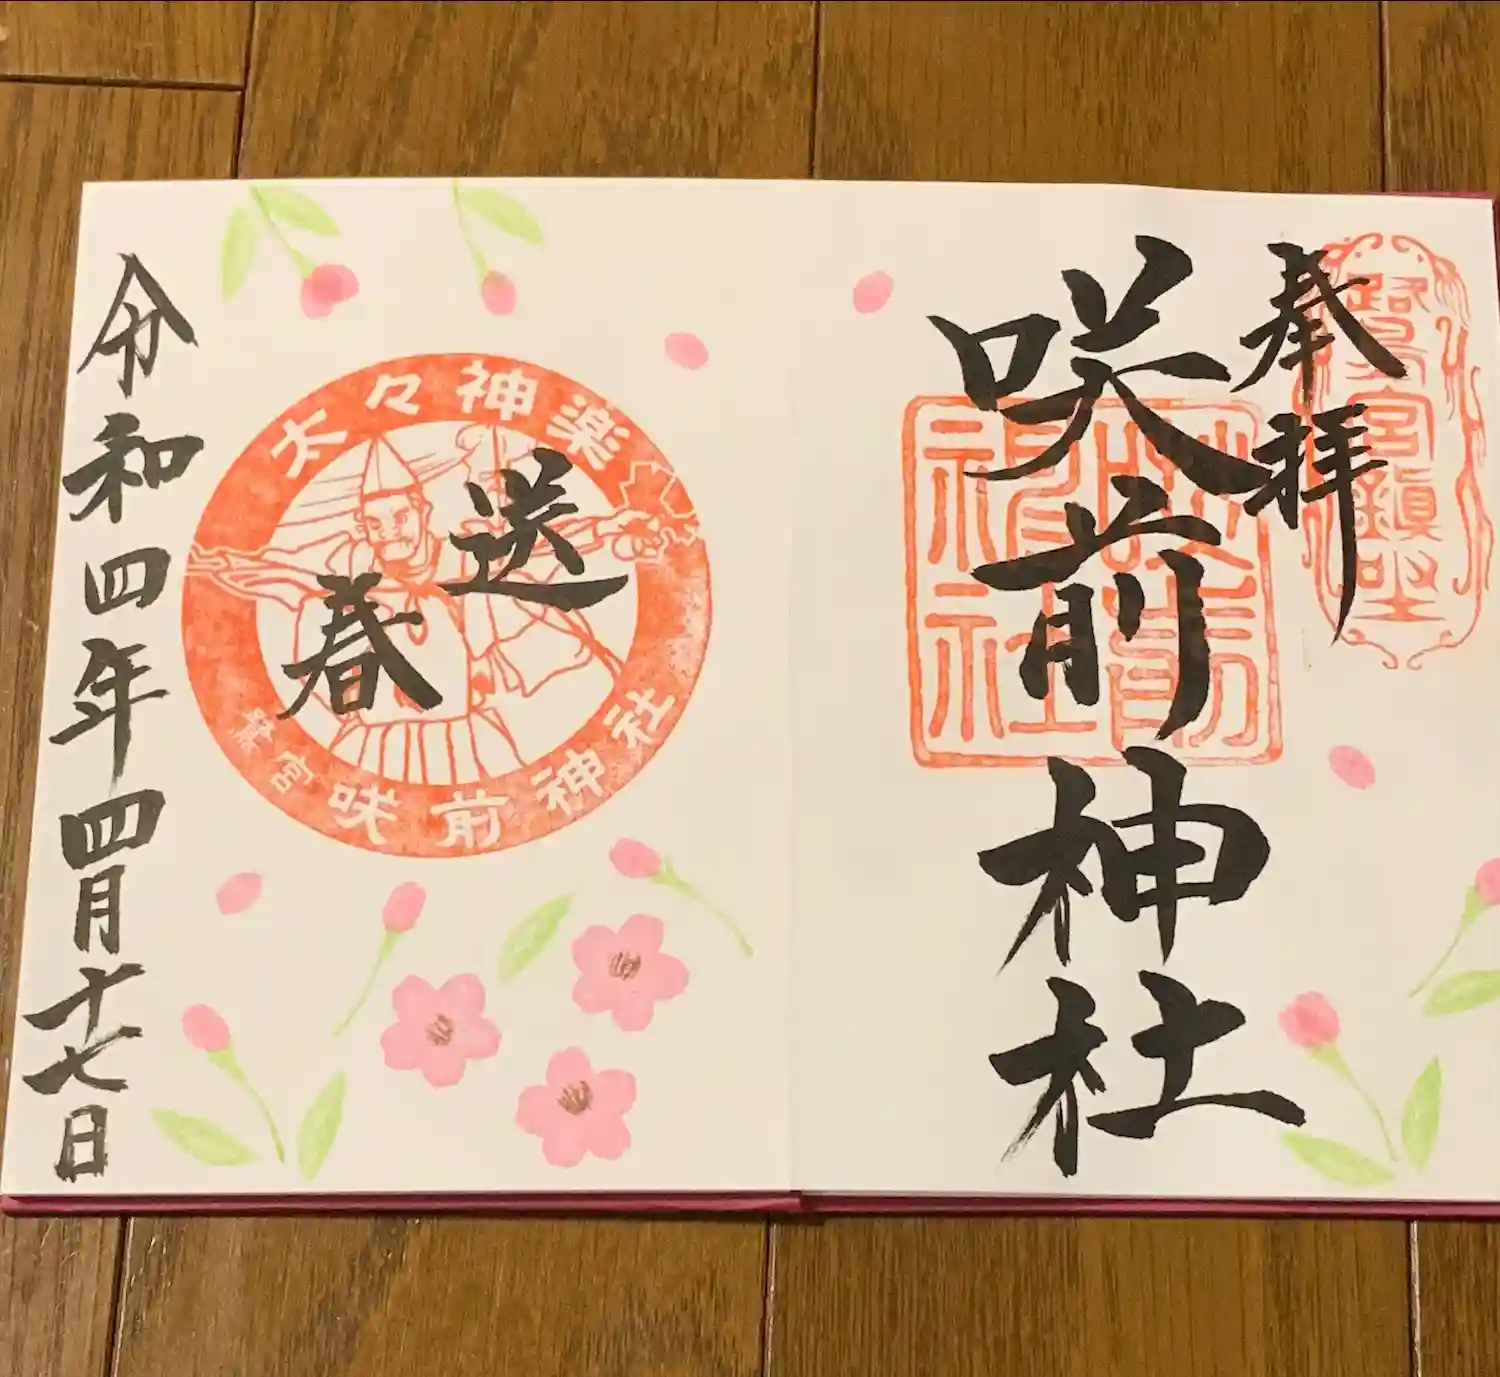 奉拝
咲前神社
鷺宮鎮座
咲前神社
送春
太々神楽
鷺宮咲前神社
令和四年四月十七日